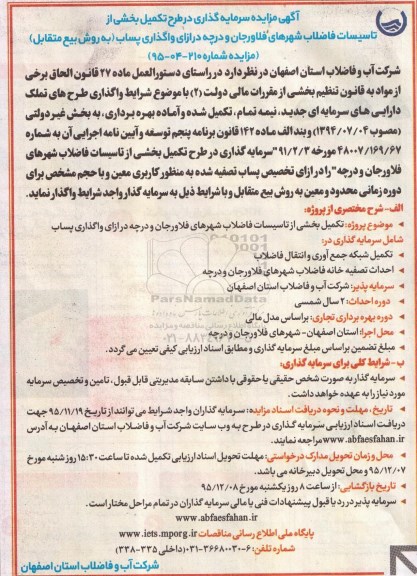 آگهی مزایده سرمایه گذاری در طرح تکمیل بخشی از
تاسیسات فاضلاب شهرهای فلاورجان و درچه در ازای واگذاری پساب (به روش بیع متقابل)
(مزایده شماره ۲۱۰-۰۴-۹۵)
شرکت آب و فاضلاب استان اصفهان در نظر دارد در راستای دستورالعمل ماده ۲۷ قانون الحاق برخی
از مواد به قانون تنظیم بخشی از مقررات مالی دولت (۲) با موضوع شرایط واگذاری طرح های تملک
دارایی های سرمایه ای جدید، نیمه تمام، تکمیل شده و آماده بهره برداری، به بخش غیر دولتی
(مصوب ۱۳۹۴/۰۷/۰۴) و بند الف ماده ۱۴۲ قانون برنامه پنجم توسعه و آیین نامه اجرایی آن به شماره
۴۸۰۰۷/۱۶۹/۶۷ مورخه ۹۱/۲/۳ "سرمایه گذاری در طرح تکمیل بخشی از تاسیسات فاضلاب شهرهای
فلاورجان و درچه" را در ازای تخصیص پساب تصفیه شده به منظور کاربری معین و با حجم مشخص برای
دوره زمانی محدود و معین به روش بیع متقابل و با شرایط ذیل به سرمایه گذار واجد شرایط واگذار نماید.
الف- شرح مختصری از پروژه:
موضوع پروژه: تکمیل بخشی از تاسیسات فاضلاب شهرهای فلاورجان و درچه در ازای واگذاری پساب
شامل سرمایه گذاری در:
تکمیل شبکه جمع آوری و انتقال فاضلاب
احداث تصفیه خانه فاضلاب شهرهای فلاورجان و درچه
سرمایه پذیر: شرکت آب و فاضلاب استان اصفهان
دوره احداث: ۲ سال شمسی
دوره بهره برداری تجاری: براساس مدل مالی
محل اجرا: استان اصفهان - شهرهای فلاورجان و درچه
مبلغ تضمین براساس مبلغ سرمایه گذاری و مطابق اسناد ارزیابی کیفی تعیین می گردد.
ب- شرایط کلی برای سرمایه گذاری:
سرمایه گذار به صورت شخص حقیقی یا حقوقی با داشتن سابقه مدیریتی قابل قبول، تامین و تخصیص سرمایه
مورد نیاز را به عهده خواهد داشت.
تاریخ، مهلت و نحوه دریافت اسناد مزایده: سرمایه گذاران واجد شرایط می توانند از تاریخ ۹۵/۱۱/۱۹ جهت
دریافت اسناد ارزیابی سرمایه گذاری در طرح به وب سایت شرکت آب و فاضلاب استان اصفهان به آدرس
www.abfaesfahan.ir مراجعه نمایند.
محل و زمان تحویل مدارک درخواستی: مهلت تحویل اسناد ارزیابی تکمیل شده تا ساعت ۱۵:۳۰ روز شنبه مورخ
۹۵/۱۲/۰۷ و محل تحویل دبیرخانه می باشد.
تاریخ بازگشایی: از ساعت ۸ روز یکشنبه مورخ ۹۵/۱۲/۰۸
سرمایه پذیر در رد یا قبول پیشنهادات فنی یا مالی سرمایه گذاران در تمام مراحل مختار است.
www.abfaesfahan.ir
پایگاه ملی اطلاع رسانی مناقصات www.iets.mporg.ir
شماره تلفن: ۶-۰۳۱-۳۶۶۸۰۰۳۰ (داخلی ۳۳۵-۳۳۸)
شرکت آب و فاضلاب استان اصفهان
ParsNamadData